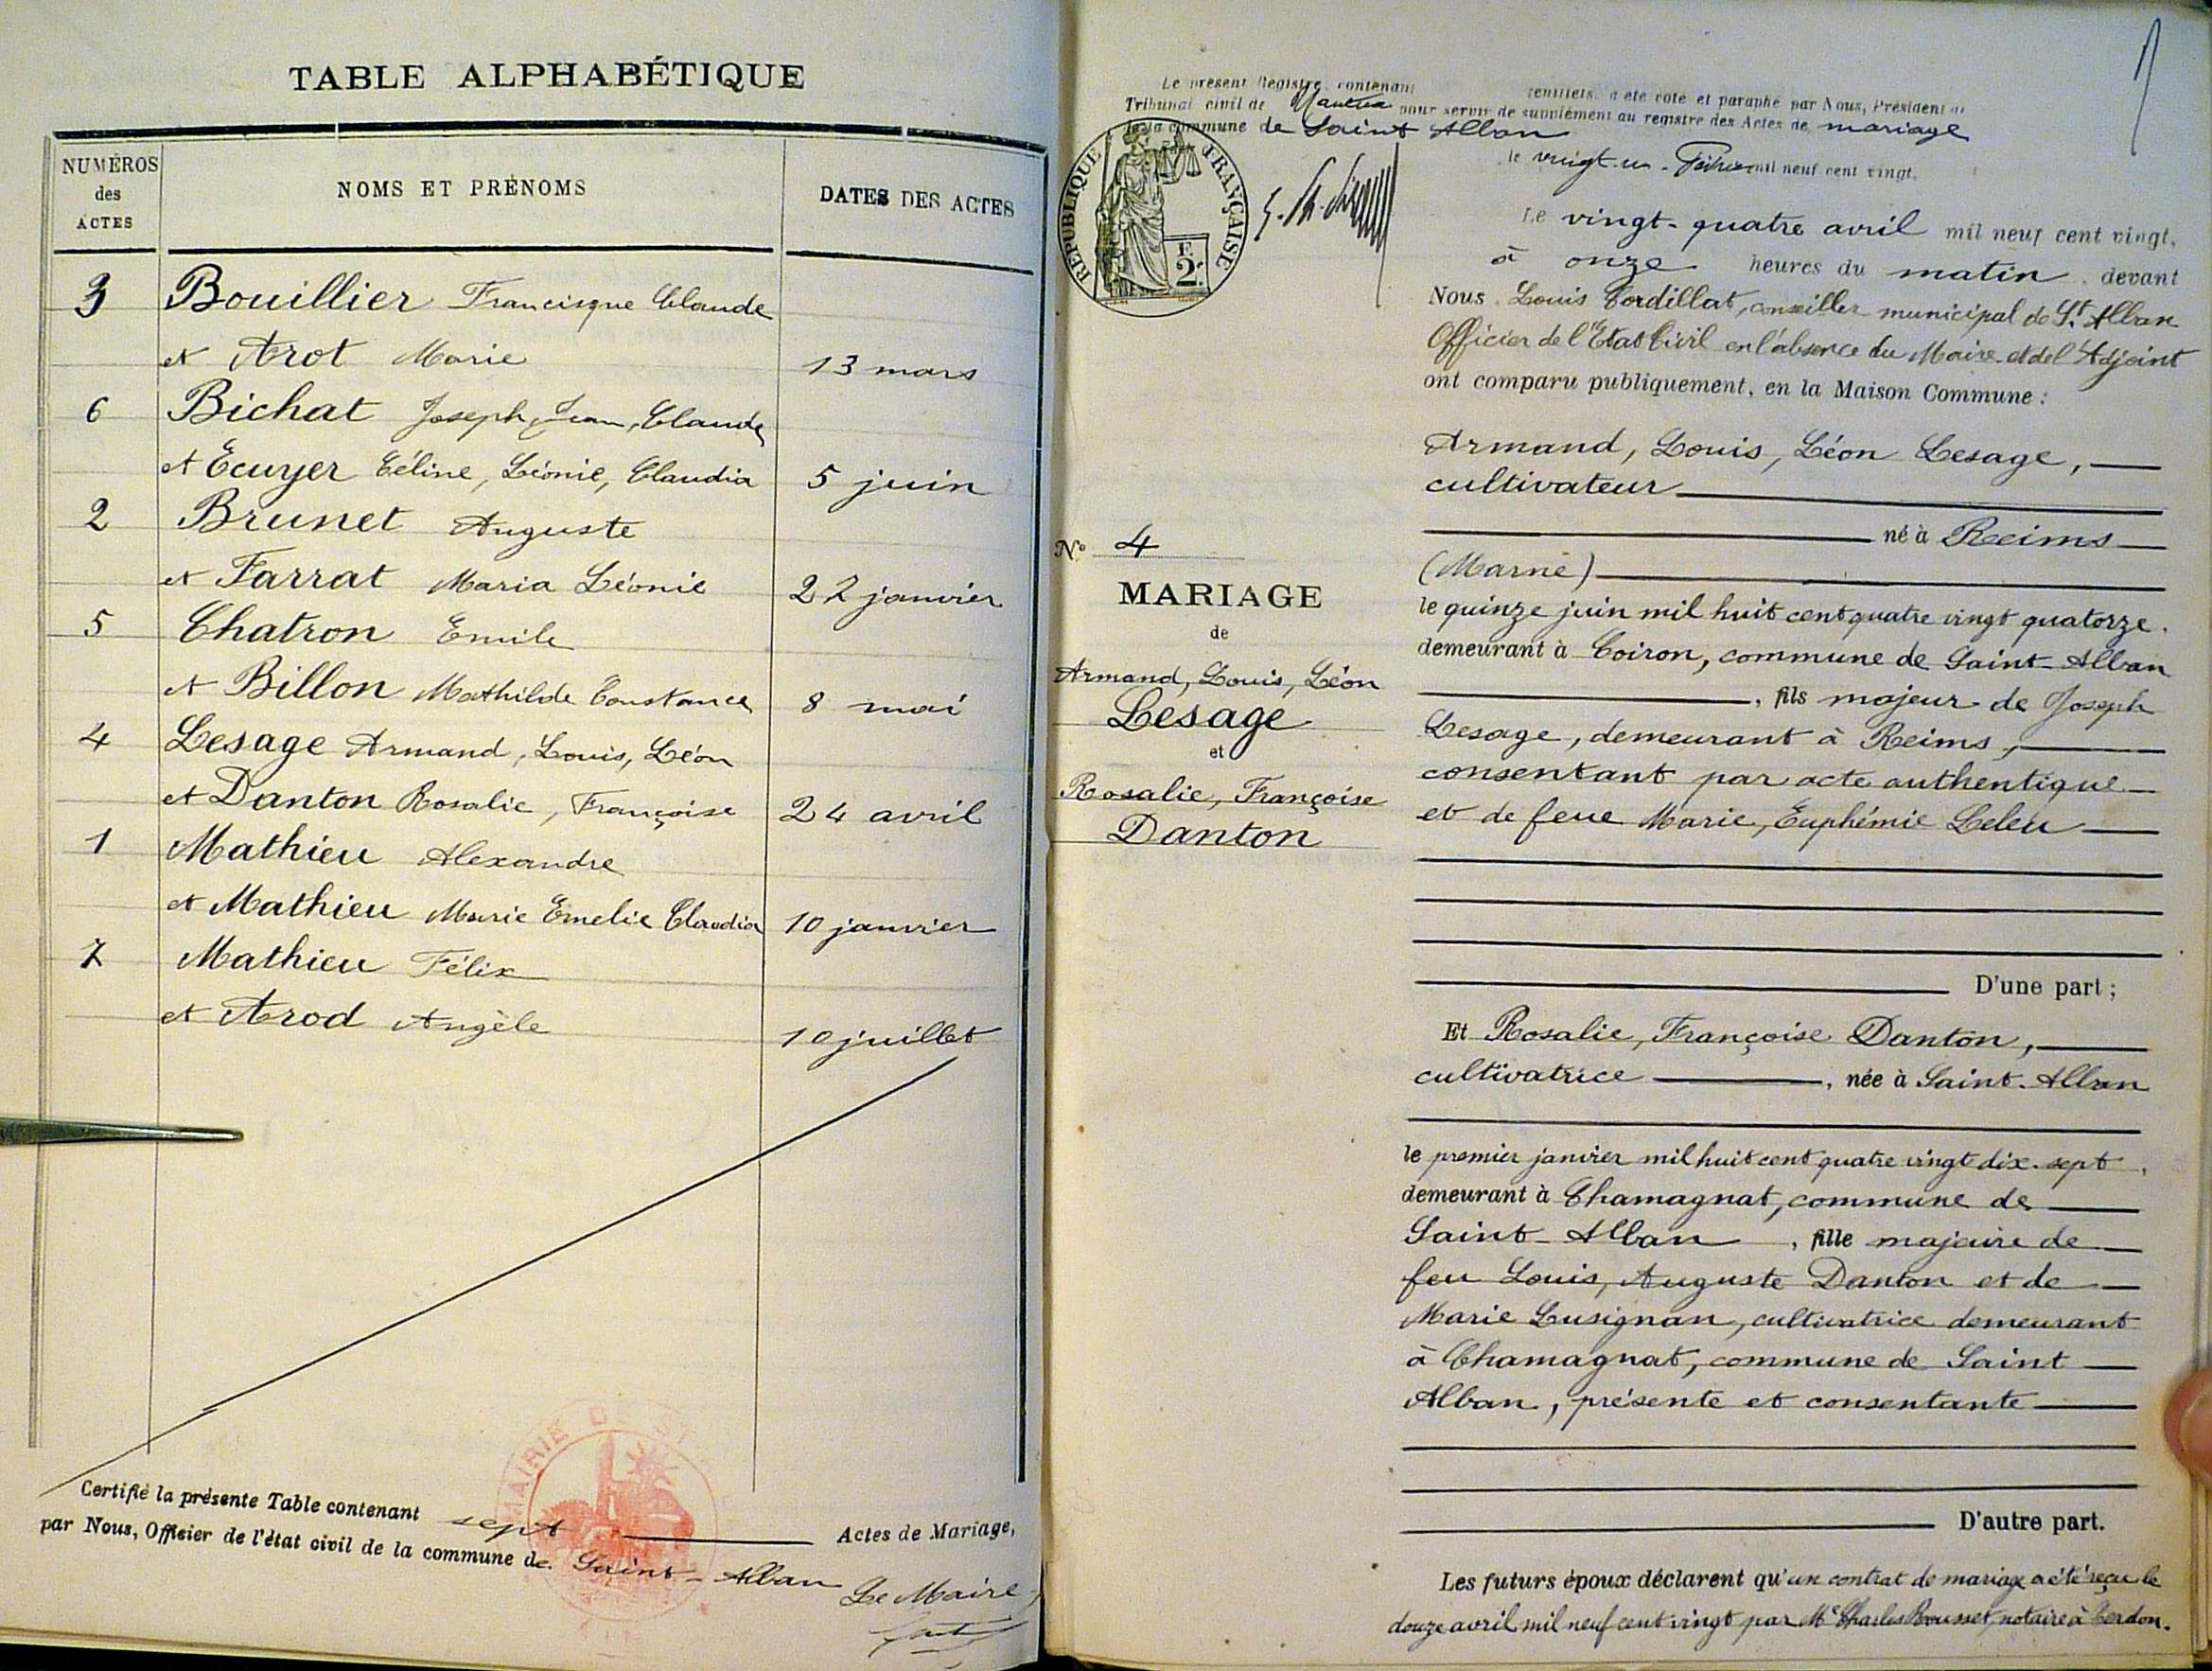 TABLE ALPHABÉTIQUE
NUMÉROS
des
ACTES
NOMS ET PRÉNOMS
DATES DES ACTES
3 Bouillier Francisque Claude
et Arot Marie 13 mars
6 Bichat Joseph, Jean, Claude
et Ecuyer Céline, Léonie, Claudia 5 juin
2 Brunet Auguste
et Farrat Maria Léonie 22 janvier
5 Chatron Emile
et Billon Mathilde Constance 8 mai
4 Lesage Armand, Louis, Léon
et Danton Rosalie, Françoise 24 avril
1 Mathieu Alexandre
et Mathieu Marie Emelie Claudia 10 janvier
7 Mathieu Félix
et Arod Angèle 10 juillet
MAIRIE DE ST
Certifié la présente Table contenant sept Actes de Mariage,
par Nous, Officier de l'état civil de la commune de Saint-Alban
Le Maire,
Le présent Registre, contenant feuillets, a été coté et paraphé par Nous, Président du
Tribunal civil de Nantua pour servir de supplément au registre des Actes de mariage
de la commune de Saint Alban
le vingt-un mil neuf cent vingt.
RÉPUBLIQUE FRANÇAISE
2F
Le vingt-quatre avril mil neuf cent vingt,
à onze heures du matin, devant
Nous Louis Cordillat, conseiller municipal de St Alban
Officier de l'Etat Civil en l'absence du Maire et de l'Adjoint
ont comparu publiquement, en la Maison Commune :
N° 4
MARIAGE
de
Armand, Louis, Léon
Lesage
et
Rosalie, Françoise
Danton
Armand, Louis, Léon Lesage,
cultivateur
né à Reims
(Marne)
le quinze juin mil huit cent quatre vingt quatorze,
demeurant à Coiron, commune de Saint-Alban
, fils majeur de Joseph
Lesage, demeurant à Reims,
consentant par acte authentique
et de feue Marie, Euphémie Leleu
D'une part ;
Et Rosalie, Françoise Danton,
cultivatrice , née à Saint-Alban
le premier janvier mil huit cent quatre vingt dix-sept,
demeurant à Chamagnat, commune de
Saint-Alban , fille majeure de
feu Louis, Auguste Danton et de
Marie Lusignan, cultivatrice demeurant
à Chamagnat, commune de Saint
Alban, présente et consentante
D'autre part.
Les futurs époux déclarent qu'un contrat de mariage a été reçu le
douze avril mil neuf cent vingt par Me Charles Rousset, notaire à Cerdon.